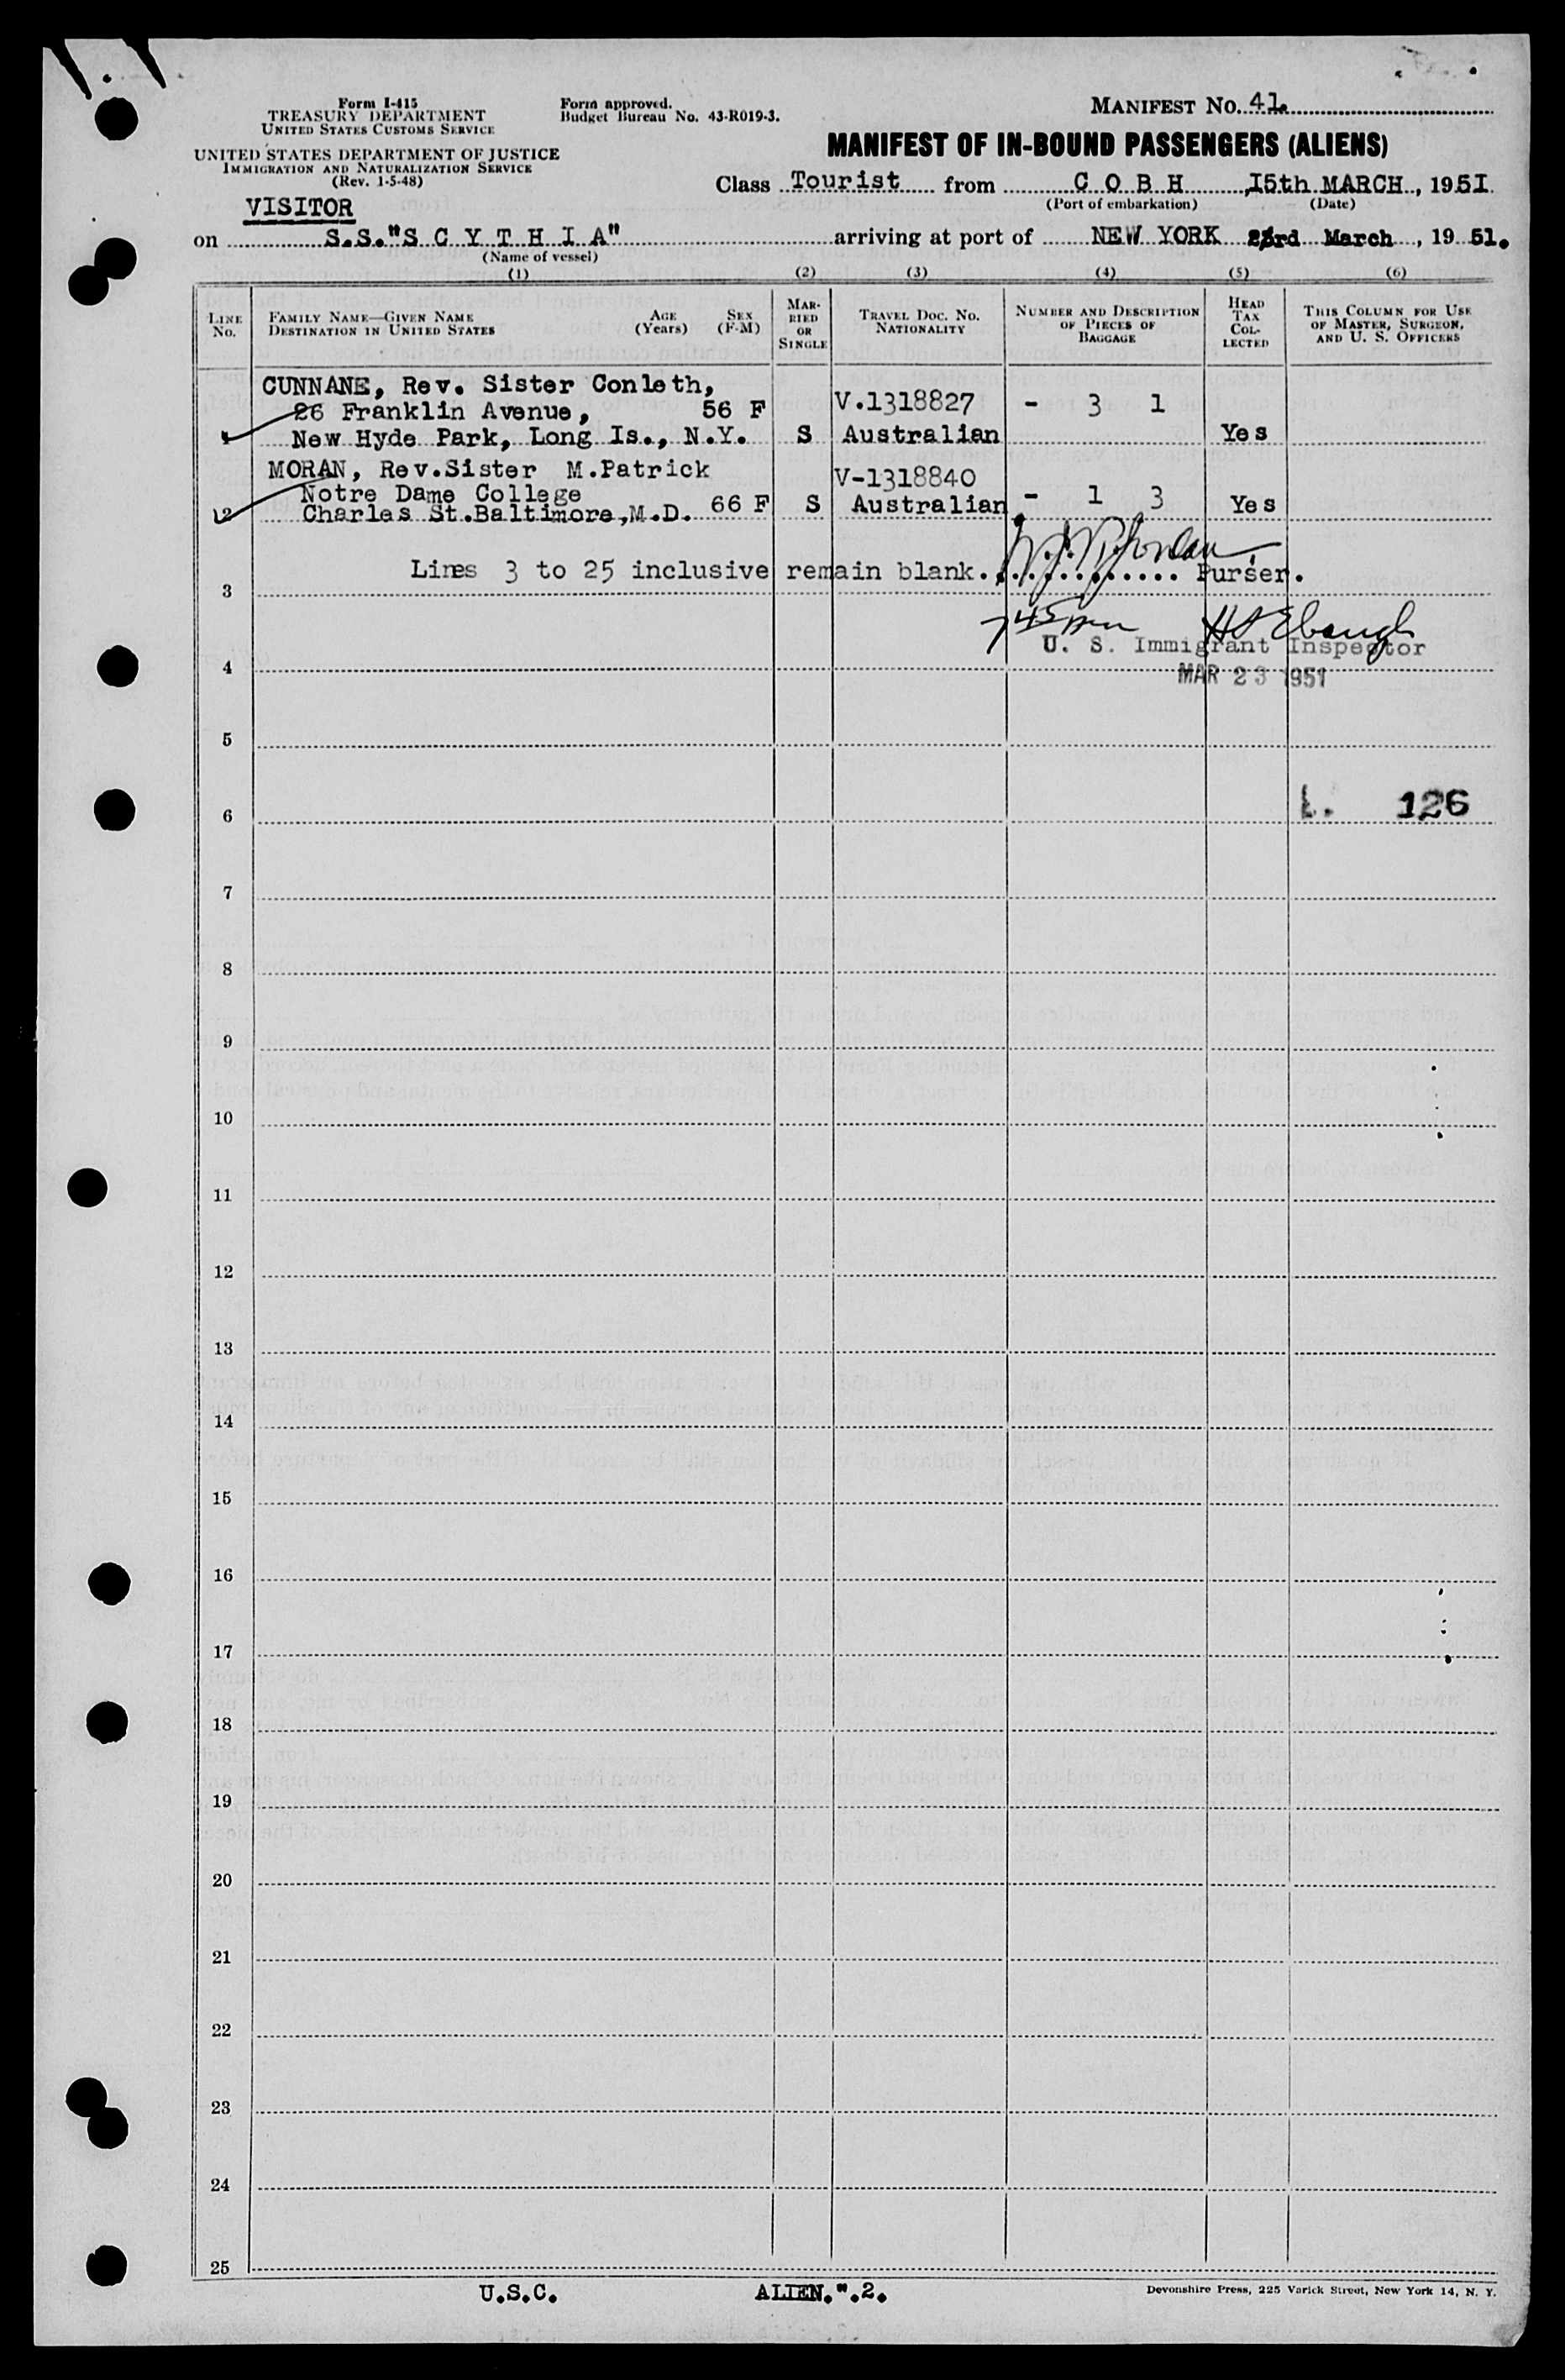 Form I-415
TREASURY DEPARTMENT
UNITED STATES CUSTOMS SERVICE
UNITED STATES DEPARTMENT OF JUSTICE
IMMIGRATION AND NATURALIZATION SERVICE
(Rev. 1-5-48)
Form approved.
Budget Bureau No. 43-R019-3.
MANIFEST NO. 41.
MANIFEST OF IN-BOUND PASSENGERS (ALIENS)
Class Tourist from C O B H, 15th MARCH, 1951
(Port of embarkation) (Date)
VISITOR
on S.S."S C Y T H I A" arriving at port of NEW YORK 23rd March, 19 51.
(Name of vessel)
(1) (2) (3) (4) (5) (6)
LINE NO. FAMILY NAME—GIVEN NAME DESTINATION IN UNITED STATES AGE (Years) SEX (F-M) MARRIED OR SINGLE TRAVEL DOC. NO. NATIONALITY NUMBER AND DESCRIPTION OF PIECES OF BAGGAGE HEAD TAX COLLECTED THIS COLUMN FOR USE OF MASTER, SURGEON, AND U. S. OFFICERS
CUNNANE, Rev. Sister Conleth,
26 Franklin Avenue, 56 F V.1318827 - 3 1
1 New Hyde Park, Long Is., N.Y. S Australian Yes
MORAN, Rev.Sister M.Patrick V-1318840
Notre Dame College
2 Charles St.Baltimore,M.D. 66 F S Australian - 1 3 Yes
Lines 3 to 25 inclusive remain blank.............. Purser.
3
745 pm
U. S. Immigrant Inspector
4
MAR 23 1951
5
126
6
7
8
9
10
11
12
13
14
15
16
17
18
19
20
21
22
23
24
25
U.S.C. ALIEN.".2.
Devonshire Press, 225 Varick Street, New York 14, N. Y.